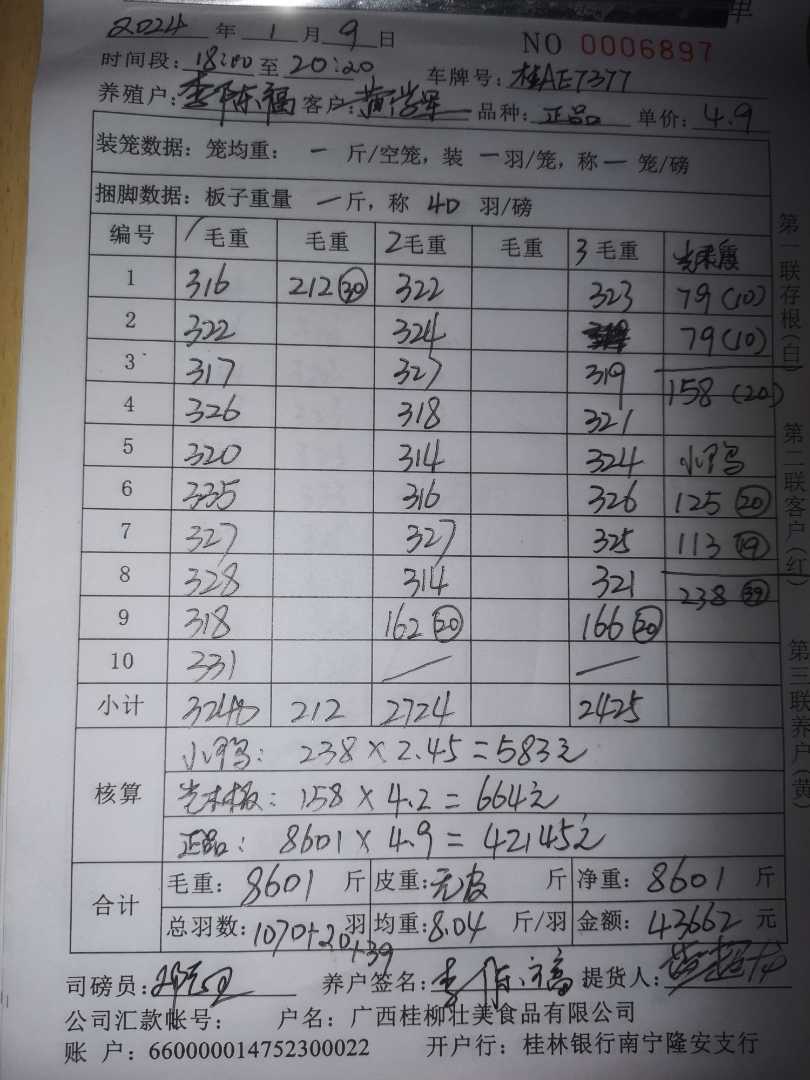 单
2024年1月9日 NO 0006897
时间段: 18:00至20:20 车牌号: 桂AE7377
养殖户: 李陈福 客户: 黄 品种: 正品 单价: 4.9
装笼数据: 笼均重: 一 斤/空笼, 装 一羽/笼, 称一 笼/磅
捆脚数据: 板子重量 一斤, 称 40 羽/磅
编号 1毛重 毛重 2毛重 毛重 3毛重
1 316 212(30) 322 323 79(10)
2 322 324 79(10)
3 317 327 319 158(20)
4 326 318 321
5 320 314 324 小鸭
6 335 316 326 125(20)
7 327 327 325 113(19)
8 328 314 321 238(39)
9 318 162(20) 166(20)
10 331 — —
小计 3240 212 2724 2425
核算 小鸭: 238×2.45=583元
158×4.2=664元
正品: 8601×4.9=42145元
合计 毛重: 8601 斤 皮重: 无皮 斤 净重: 8601 斤
总羽数: 1070+20+39 羽 均重: 8.04 斤/羽 金额: 43662 元
司磅员: 养户签名: 李陈福 提货人:
公司汇款帐号: 户名: 广西桂柳壮美食品有限公司
账 户: 660000014752300022 开户行: 桂林银行南宁隆安支行
第一联存根(白) 第二联客户(红) 第三联养户(黄)